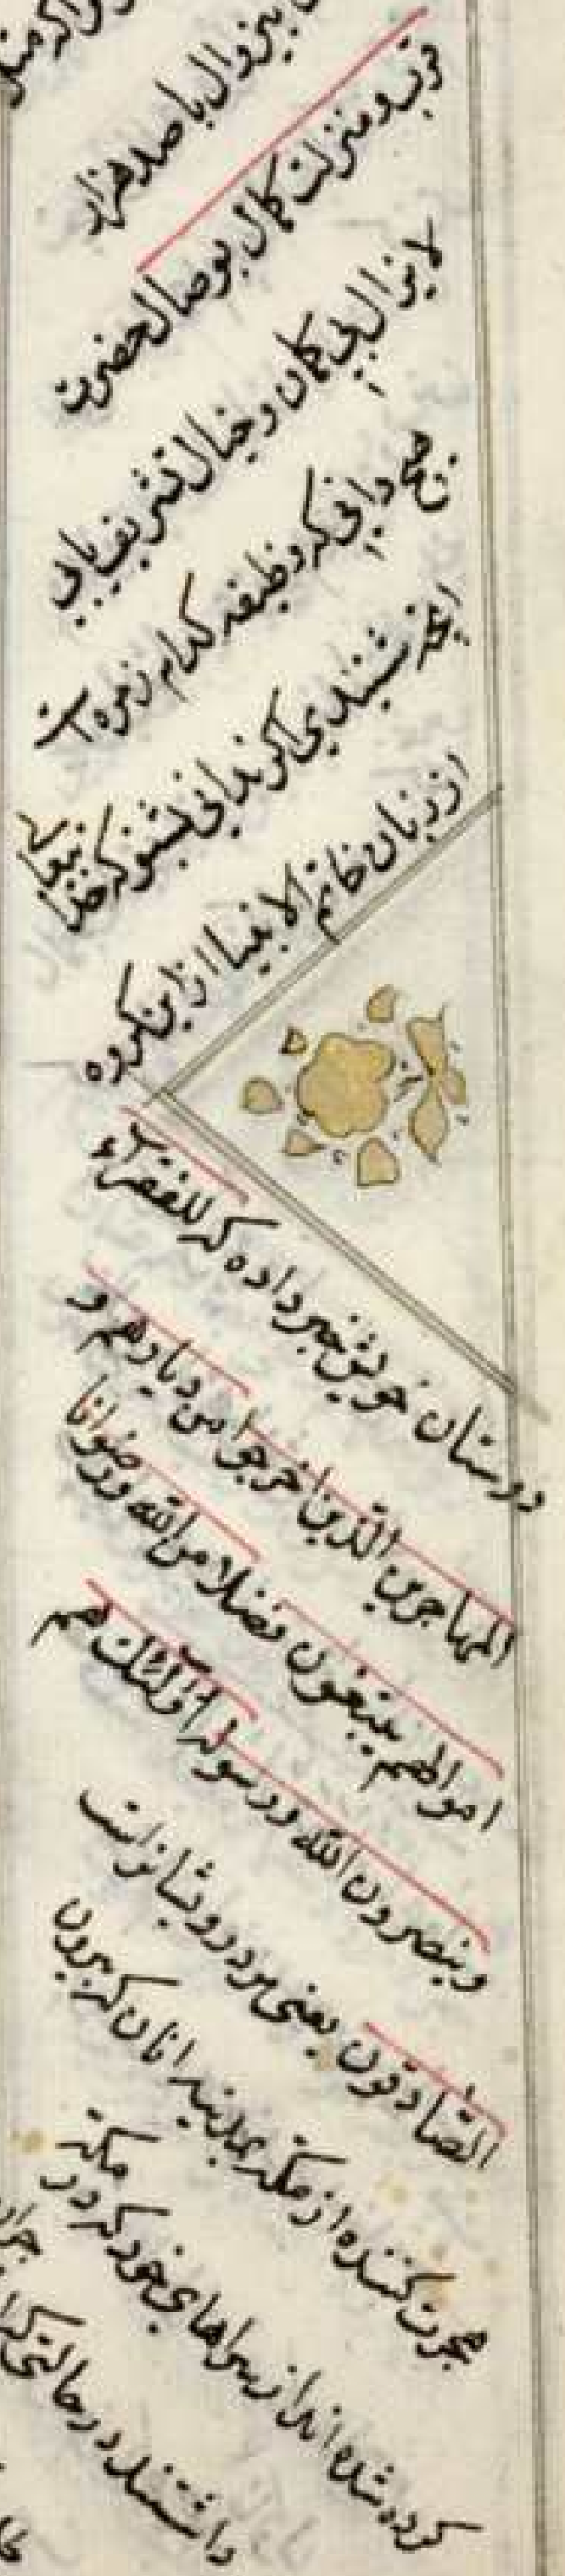 بیزوال با صد هزار
قرب و منزلت بکمال بوصال حضرت
لایزالی بی کمان و خیال تشریف یابی
چه دانی که وظیفه کدام زمره
اگر نشنیدی اکر ندانی بشنو که
از زبان خاتم الانبیا از این کروه
دوستان خویش خبر داده که للفقرآء
المهاجرین الّذین اخرجوا من دیارهم و
اموالهم یبتغون فضلا من اللّه و رضوانا
و ینصرون اللّه و رسوله اولئک هم
الصّادقون یعنی مر درویشانراست
هجرت کننده از مکّه بمدینه انان که بیرون
کرده شده اند از سراهای خود که در مکّه
داشتند در حالتی که